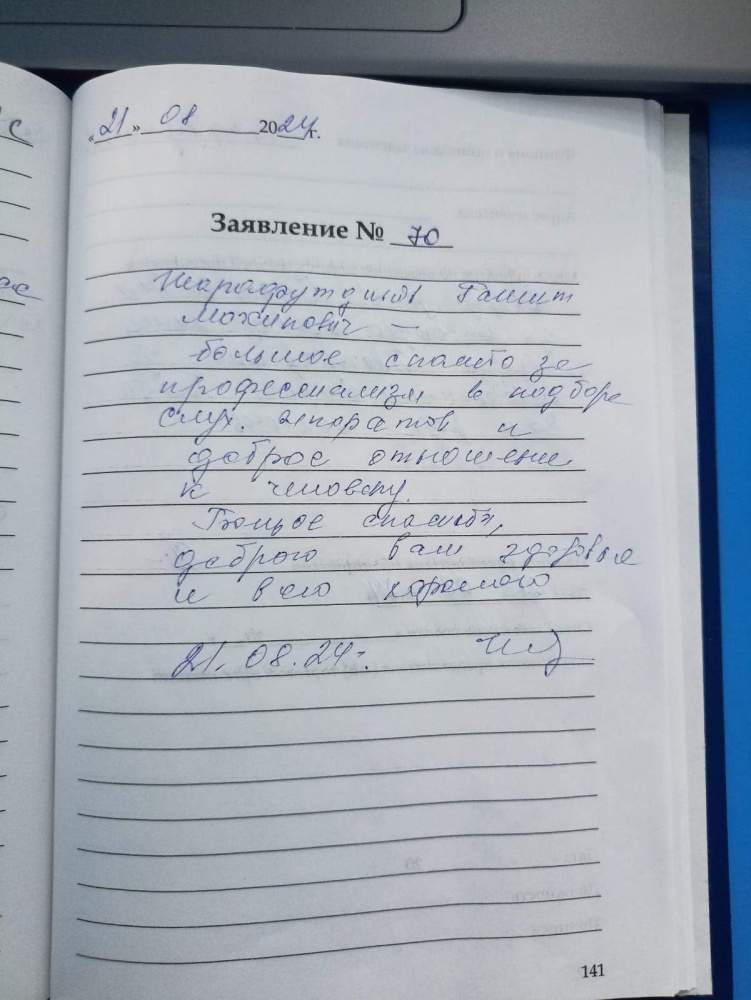 с
«21» 08 2024г.
Заявление № 70
Шарафутдинов
–
большое спасибо за
профессионализм в подборе
слух. аппаратов и
доброе отношение
к человеку.
Большое спасибо,
доброго вам здоровья
и всего хорошего
21.08.24г.
141